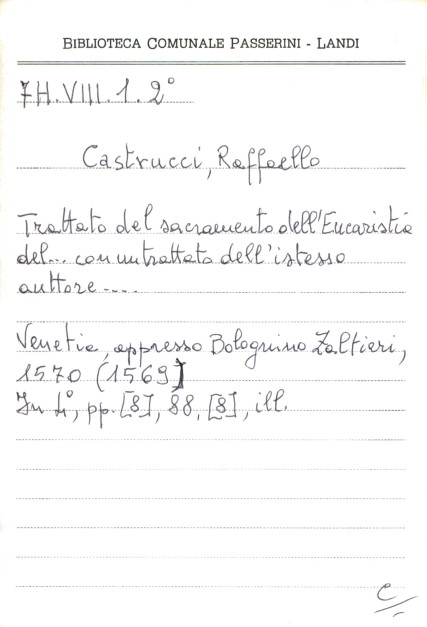 BIBLIOTECA COMUNALE PASSERINI - LANDI
7H.VIII.1.2°
Castrucci, Raffaello
Trattato del sacramento dell'Eucaristia
del... con un trattato dell'istesso
auttore ....
Venetia, appresso Bolognino Zaltieri,
1570 (1569)
In 4°, pp. [8], 88, [8], ill.
C